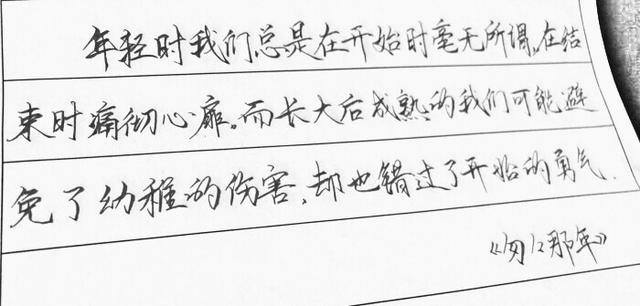 年轻时我们总是在开始时毫无所谓,在结
束时痛彻心扉。而长大后成熟的我们可能避
免了幼稚的伤害,却也错过了开始的勇气.
《匆匆那年》